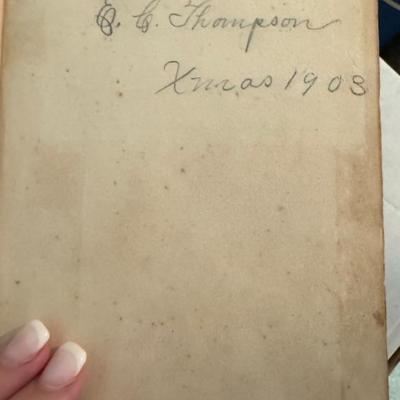 C. Thompson
Xmas 1903